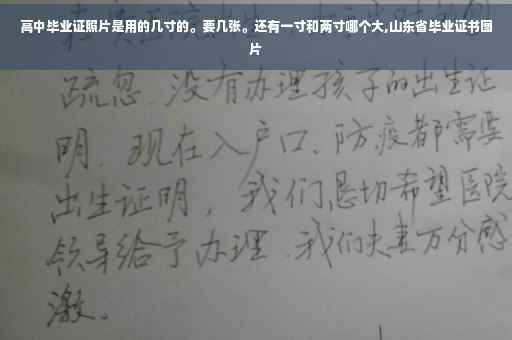 高中毕业证照片是用的几寸的。要几张。还有一寸和两寸哪个大,山东省毕业证书图
片
疏忽.没有办理孩子的出生证
明.现在入户口、防疫都需要
出生证明，我们恳切希望医院
领导给予办理.我们夫妻万分感
激。